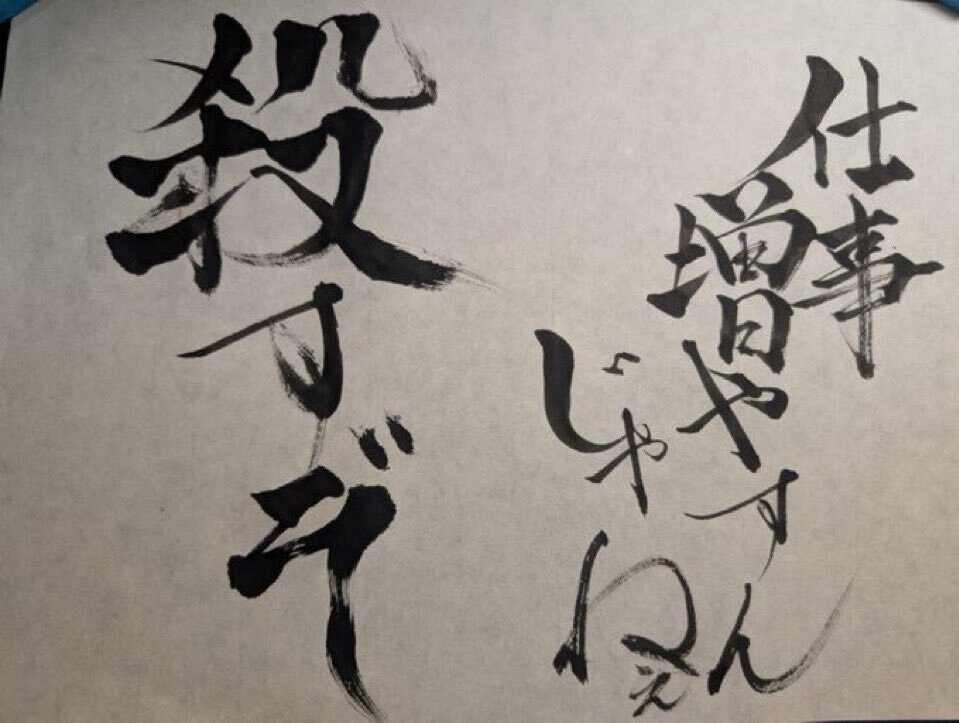 仕事
増やすん
じゃねぇ
殺すぞ